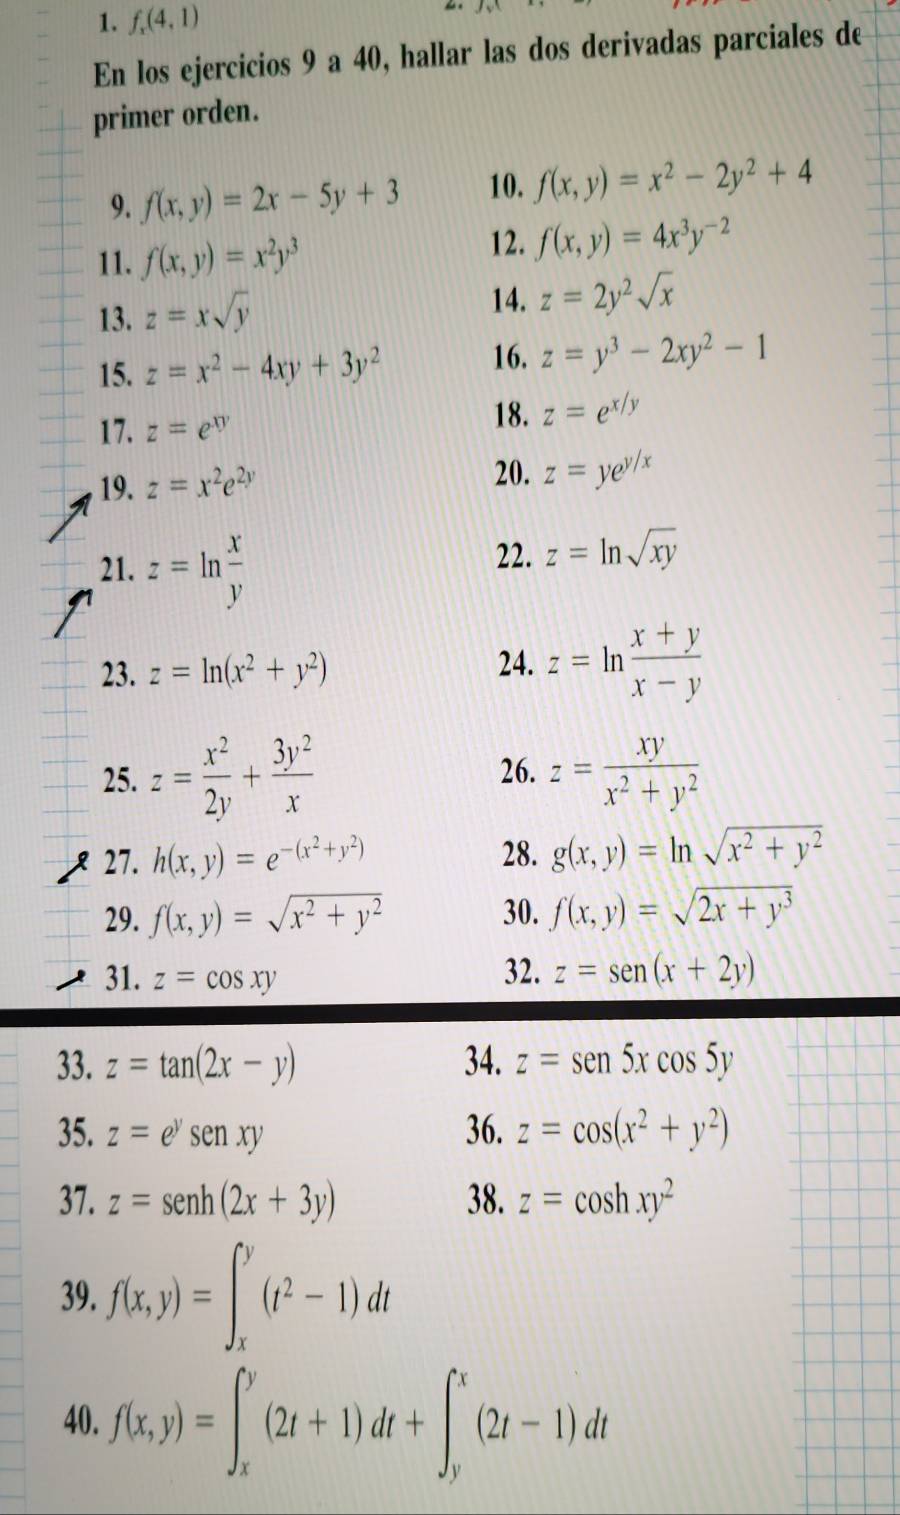 1. fₓ(4, 1)
En los ejercicios 9 a 40, hallar las dos derivadas parciales de
primer orden.
9. f(x, y) = 2x − 5y + 3
10. f(x, y) = x² − 2y² + 4
11. f(x, y) = x²y³
12. f(x, y) = 4x³y⁻²
13. z = x√y
14. z = 2y²√x
15. z = x² − 4xy + 3y²
16. z = y³ − 2xy² − 1
17. z = e^{xy}
18. z = e^{x/y}
19. z = x²e^{2y}
20. z = ye^{y/x}
21. z = ln \frac{x}{y}
22. z = ln √(xy)
23. z = ln(x² + y²)
24. z = ln \frac{x + y}{x − y}
25. z = \frac{x²}{2y} + \frac{3y²}{x}
26. z = \frac{xy}{x² + y²}
27. h(x, y) = e^{−(x²+y²)}
28. g(x, y) = ln √(x² + y²)
29. f(x, y) = √(x² + y²)
30. f(x, y) = √(2x + y³)
31. z = cos xy
32. z = sen (x + 2y)
33. z = tan(2x − y)
34. z = sen 5x cos 5y
35. z = e^{y} sen xy
36. z = cos(x² + y²)
37. z = senh (2x + 3y)
38. z = cosh xy²
39. f(x, y) = ∫_{x}^{y} (t² − 1) dt
40. f(x, y) = ∫_{x}^{y} (2t + 1) dt + ∫_{y}^{x} (2t − 1) dt